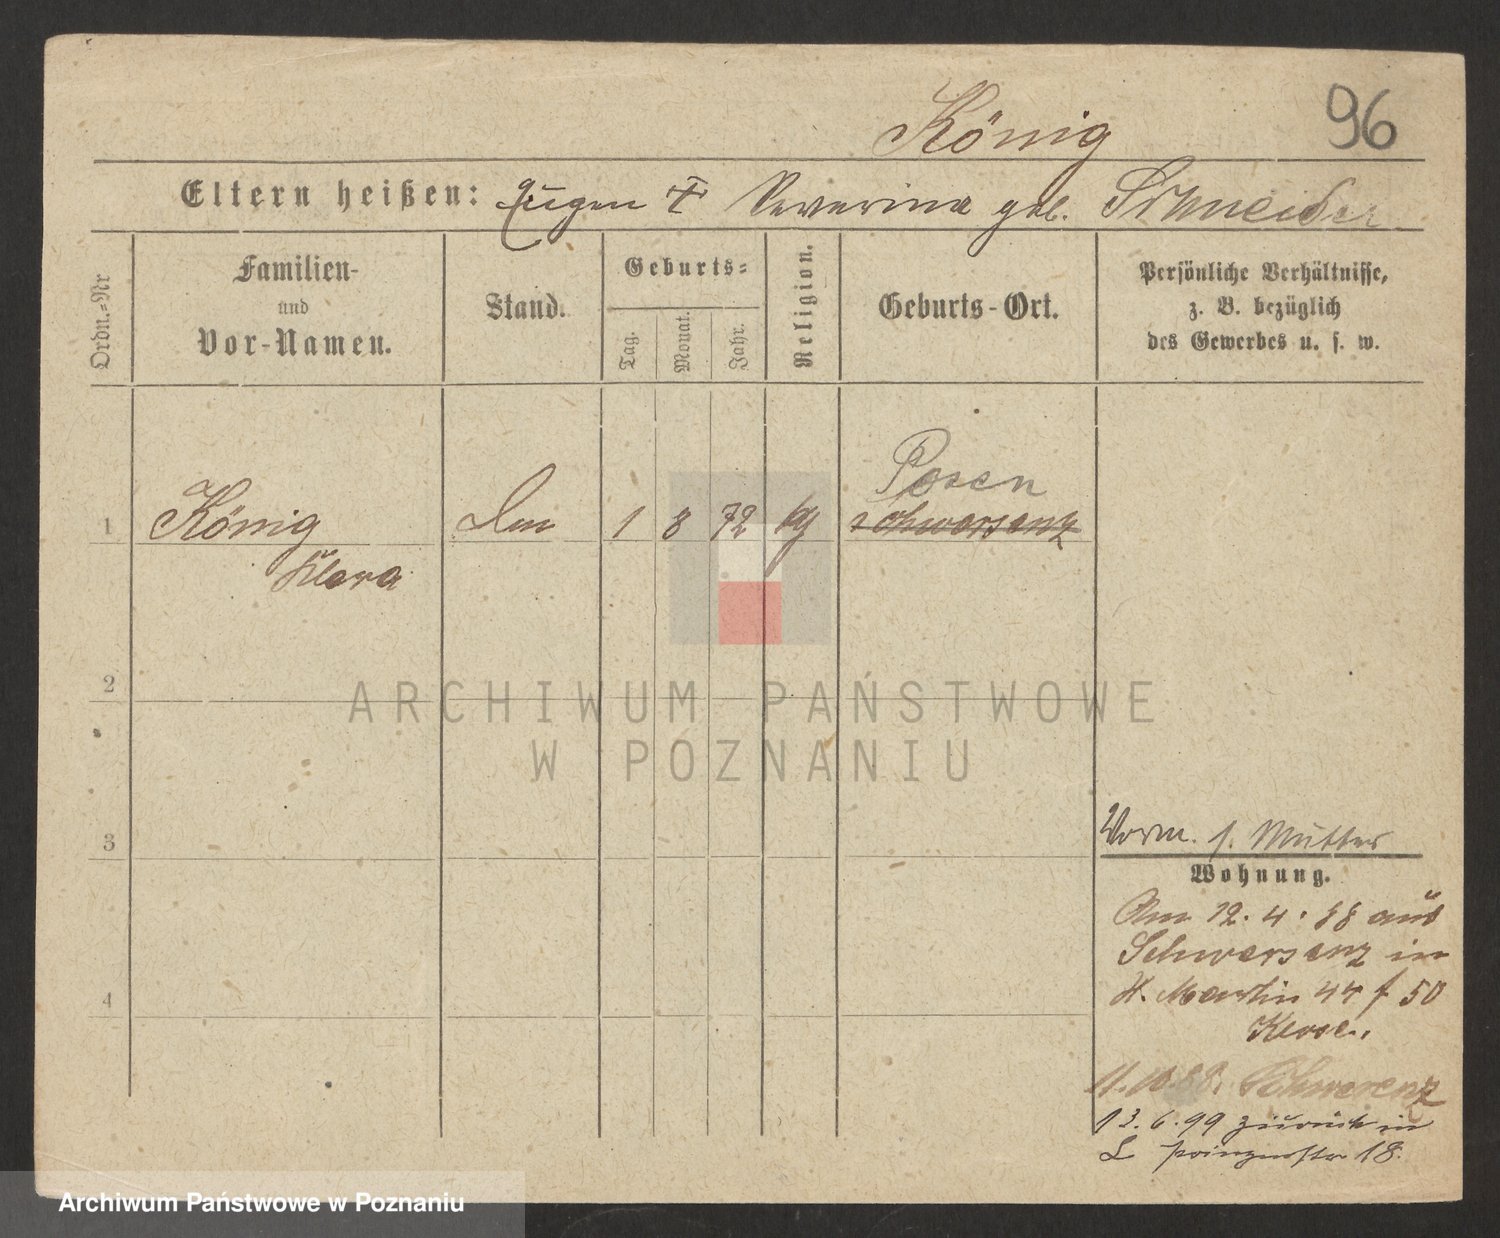 König
96
Eltern heißen: Eugen † Severina geb. Schneider
Ordn.-Nr
Familien-
und
Vor-Namen.
Stand.
Geburts-
Tag.
Monat.
Jahr.
Religion.
Geburts-Ort.
Persönliche Verhältnisse,
z. B. bezüglich
des Gewerbes u. s. w.
Posen
1 König 1 8 72 Schwersenz
Klara
2
3
4
Vorm. s. Mutter
Wohnung.
Am 12.4.88 aus
Schwersenz in
St. Martin 44 f 50
11.10.88. Schwersenz
13.6.99 zurück in
L Prinzenstr 18.
ARCHIWUM PAŃSTWOWE
W POZNANIU
Archiwum Państwowe w Poznaniu